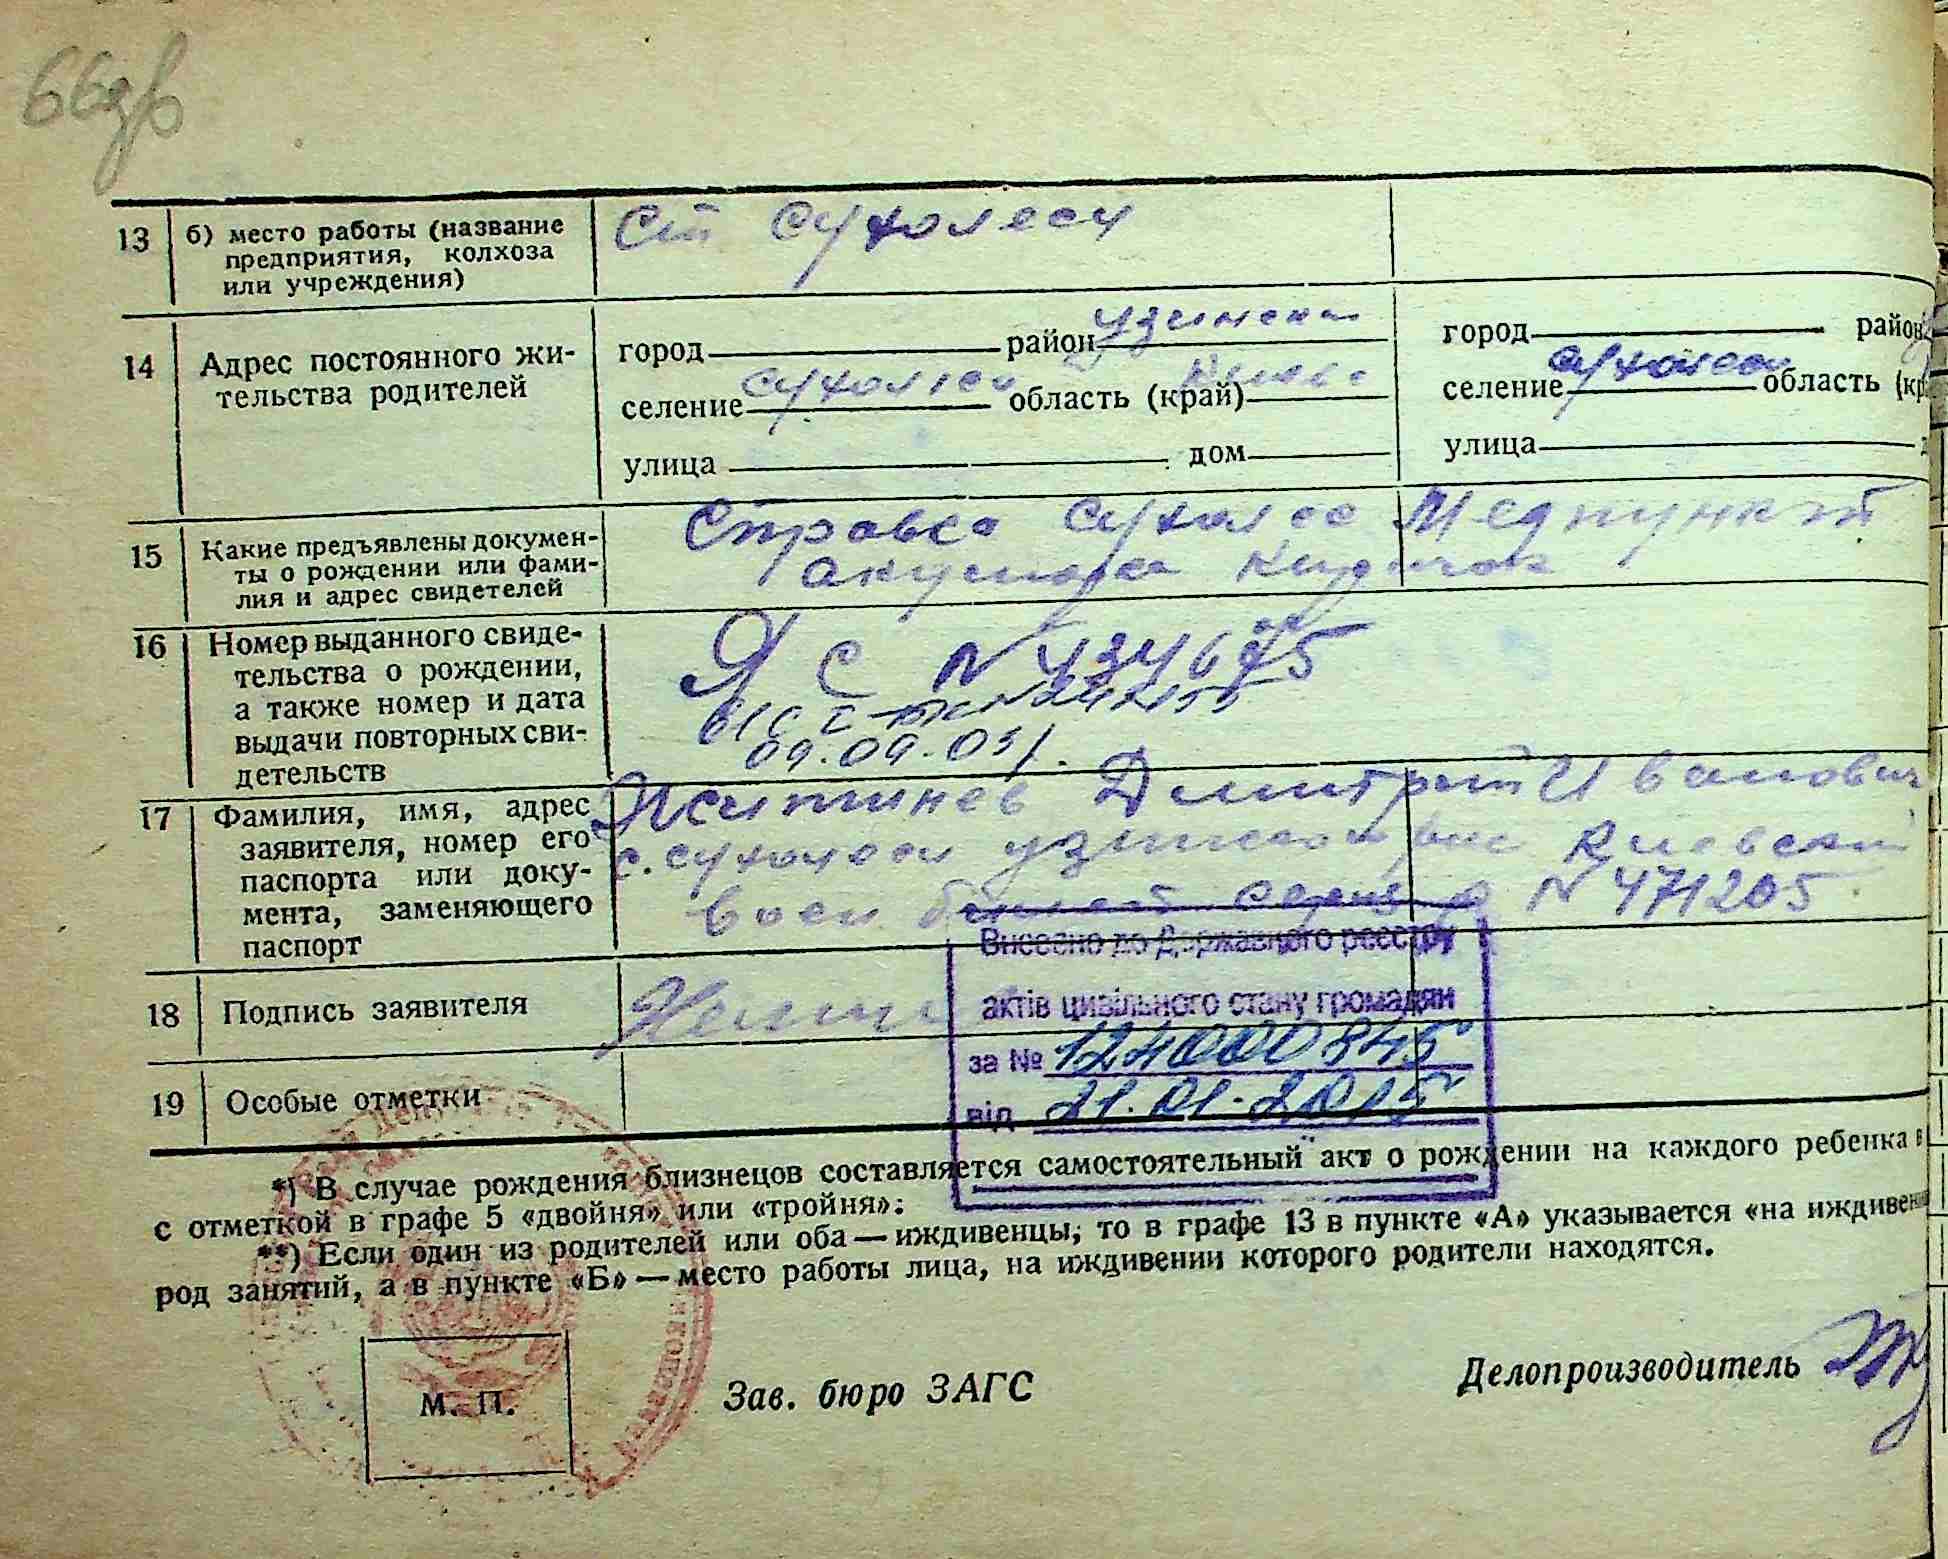 13 б) место работы (название
предприятия, колхоза
или учреждения)
Ст Сухолесы
14 Адрес постоянного жи-
тельства родителей
город район Узинский
селение Сухолесы область (край) Киевс
улица дом
город район
селение Сухолесы область (кр
улица
15 Какие предъявлены докумен-
ты о рождении или фами-
лия и адрес свидетелей
Справка Сухолес Медпункт
акушорка
16 Номер выданного свиде-
тельства о рождении,
а также номер и дата
выдачи повторных сви-
детельств
ЯС N
09.09.03
17 Фамилия, имя, адрес
заявителя, номер его
паспорта или доку-
мента, заменяющего
паспорт
Дмитрий Иванович
с. Сухолесы Узинского Киевской
воен билет серия N 471205
18 Подпись заявителя
19 Особые отметки
Внесено до Державного реєстру
актів цивільного стану громадян
за № 124000845
від 21.01.2015
*) В случае рождения близнецов составляется самостоятельный акт о рождении на каждого ребенка в
с отметкой в графе 5 «двойня» или «тройня».
**) Если один из родителей или оба — иждивенцы, то в графе 13 в пункте «А» указывается «на иждивени
род занятий, а в пункте «Б» — место работы лица, на иждивении которого родители находятся.
М. П.
Зав. бюро ЗАГС
Делопроизводитель